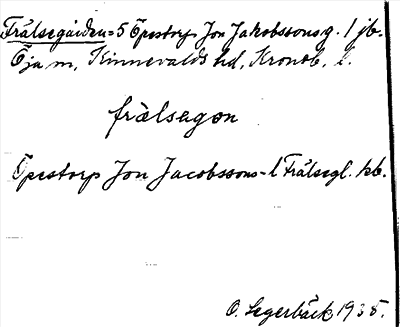 Frälsegården = 5 Öpestorp Jon Jakobssonsg. 1 jb.
Öja sn, Kinnevalds hd, Kronob. l.
frälsagon
Öpestorp Jon Jacobssons- l Frälsegl. kb.
O. Segerbäck 1935.